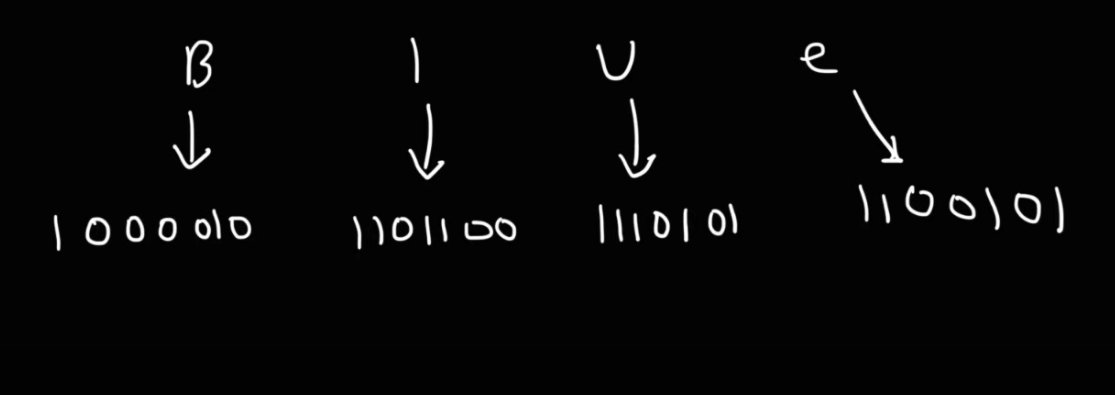 B l U e
1000010 1101100 1110101 1100101